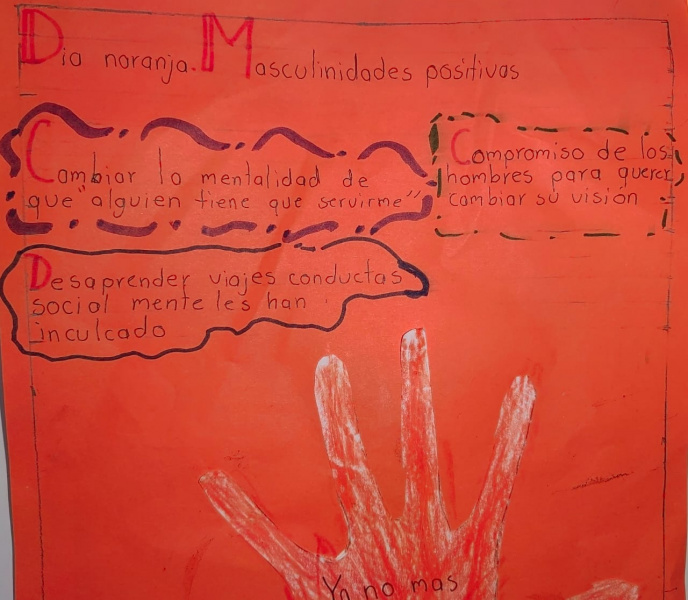 Dia noranja. Masculinidades positivas
Cambiar la mentalidad de
que "alguien tiene que servirme"
Compromiso de los
hombres para querer
cambiar su visión
Desaprender viajes conductas
social mente les han
inculcado
Ya no mas